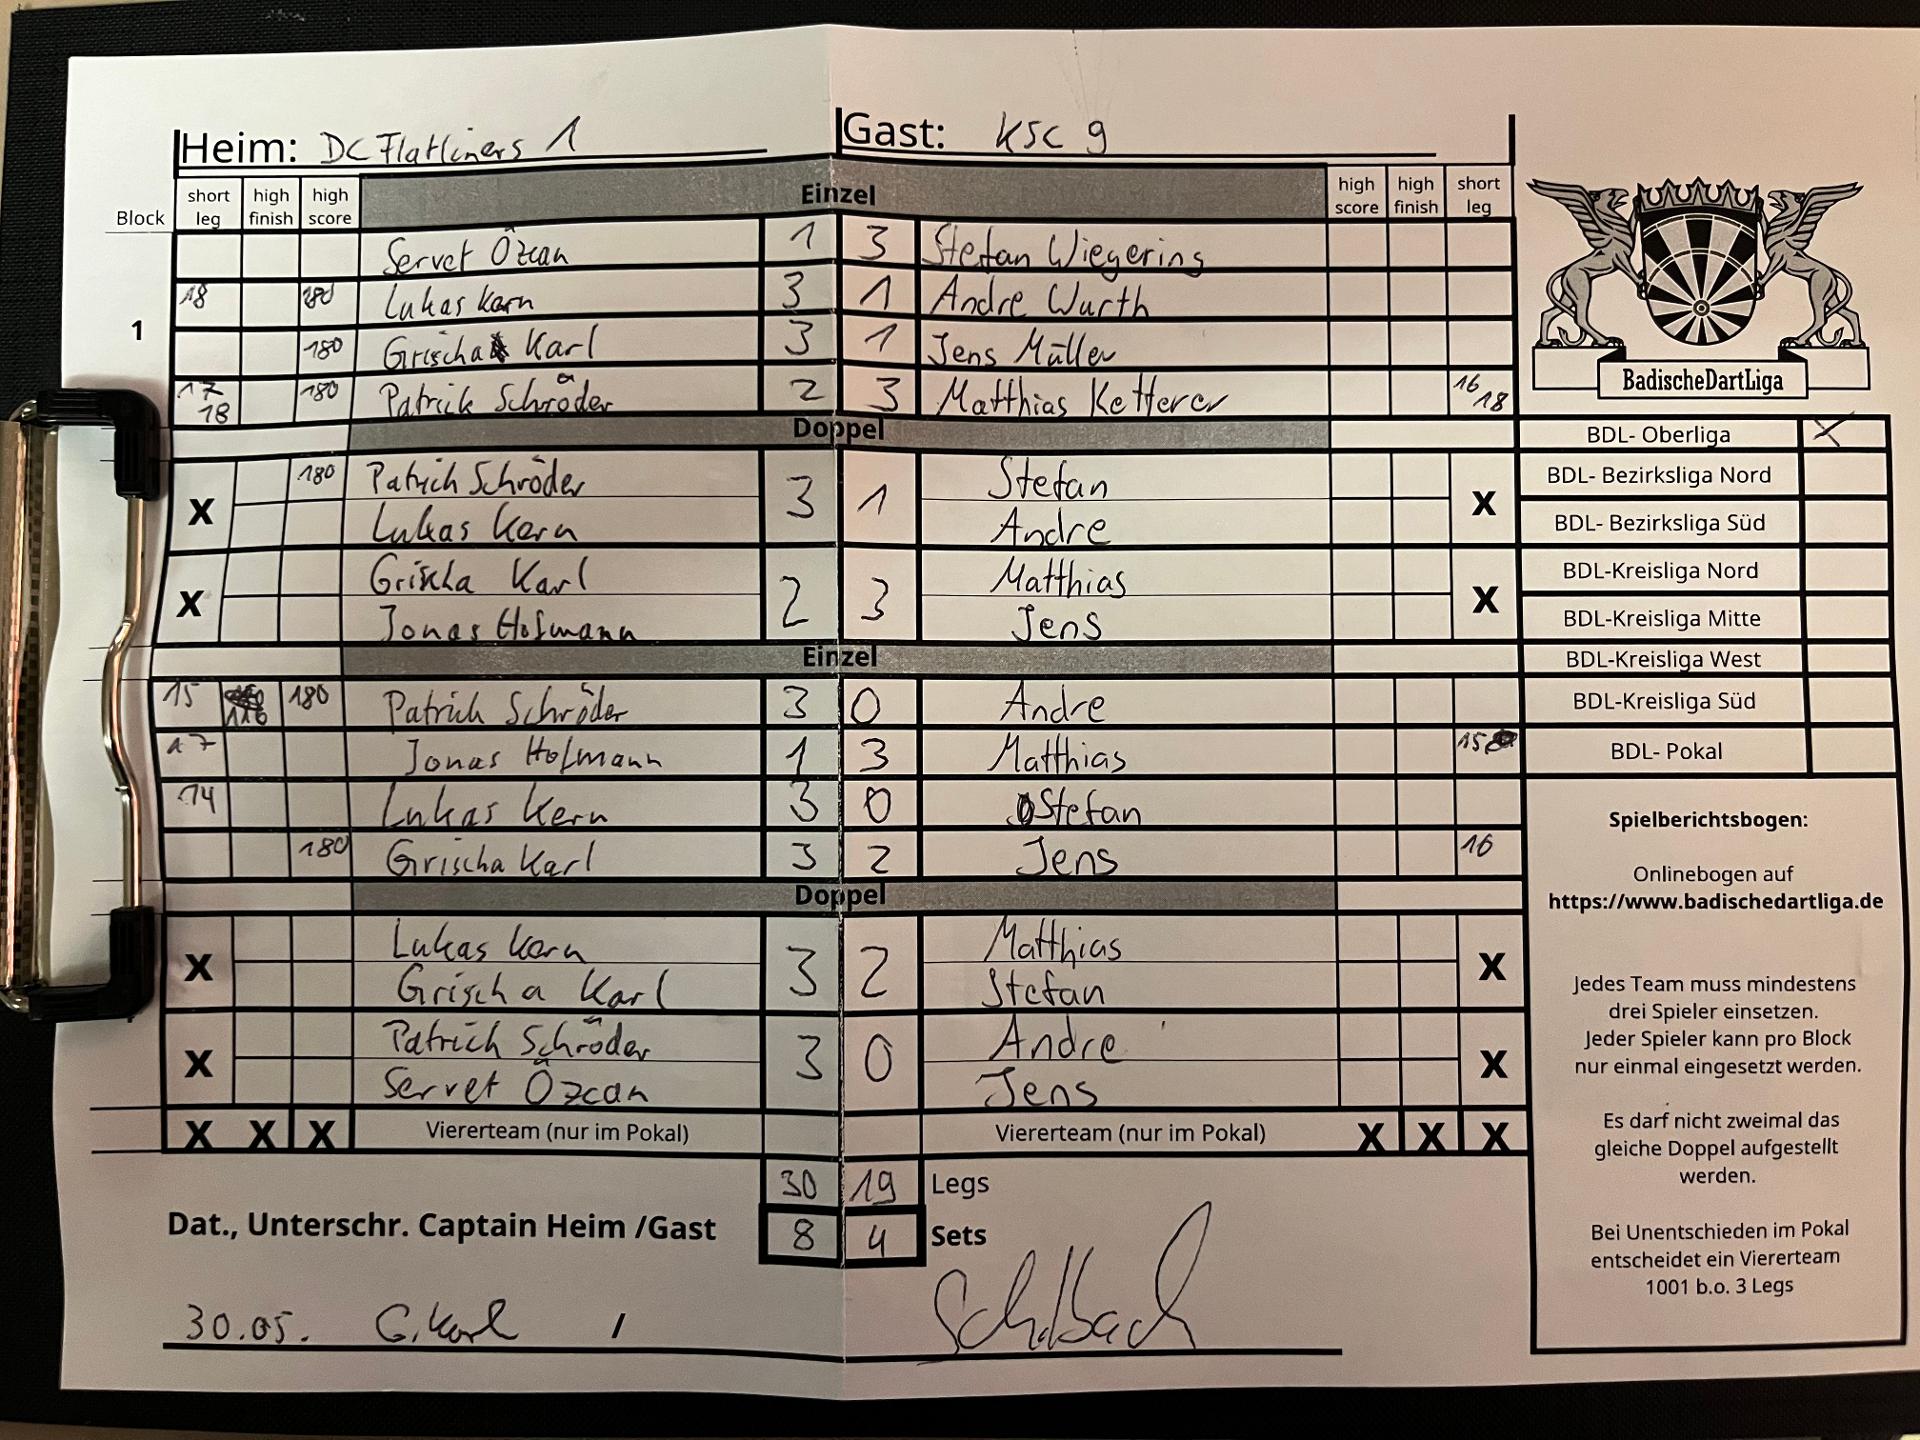 Heim: DC Flatliners 1 Gast: KSC 9
Block short leg high finish high score Einzel high score high finish short leg
Servet Özcan 1 3 Stefan Wiegering
18 180 Lukas Kern 3 1 Andre Wurth
1
180 Grischa Karl 3 1 Jens Müller
17 18 180 Patrick Schröder 2 3 Matthias Ketterer 16 18
BadischeDartLiga
Doppel
BDL- Oberliga X
X 180 Patrick Schröder 3 1 Stefan X
Lukas Kern Andre
BDL- Bezirksliga Nord
BDL- Bezirksliga Süd
X Grischa Karl 2 3 Matthias X
Jonas Hofmann Jens
BDL-Kreisliga Nord
BDL-Kreisliga Mitte
Einzel
BDL-Kreisliga West
15 116 180 Patrick Schröder 3 0 Andre
BDL-Kreisliga Süd
17 Jonas Hofmann 1 3 Matthias 15
BDL- Pokal
14 Lukas Kern 3 0 Stefan
180 Grischa Karl 3 2 Jens 16
Doppel
X Lukas Kern 3 2 Matthias X
Grischa Karl Stefan
X Patrick Schröder 3 0 Andre X
Servet Özcan Jens
X X X Viererteam (nur im Pokal) Viererteam (nur im Pokal) X X X
30 19 Legs
8 4 Sets
Dat., Unterschr. Captain Heim /Gast
30.05. G. Karl /
Spielberichtsbogen:
Onlinebogen auf
https://www.badischedartliga.de
Jedes Team muss mindestens
drei Spieler einsetzen.
Jeder Spieler kann pro Block
nur einmal eingesetzt werden.
Es darf nicht zweimal das
gleiche Doppel aufgestellt
werden.
Bei Unentschieden im Pokal
entscheidet ein Viererteam
1001 b.o. 3 Legs